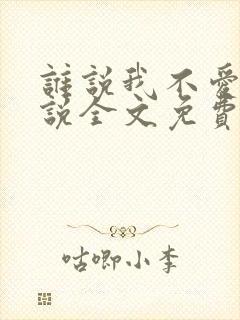 誰說我不愛
說全文免費
咕唧小李